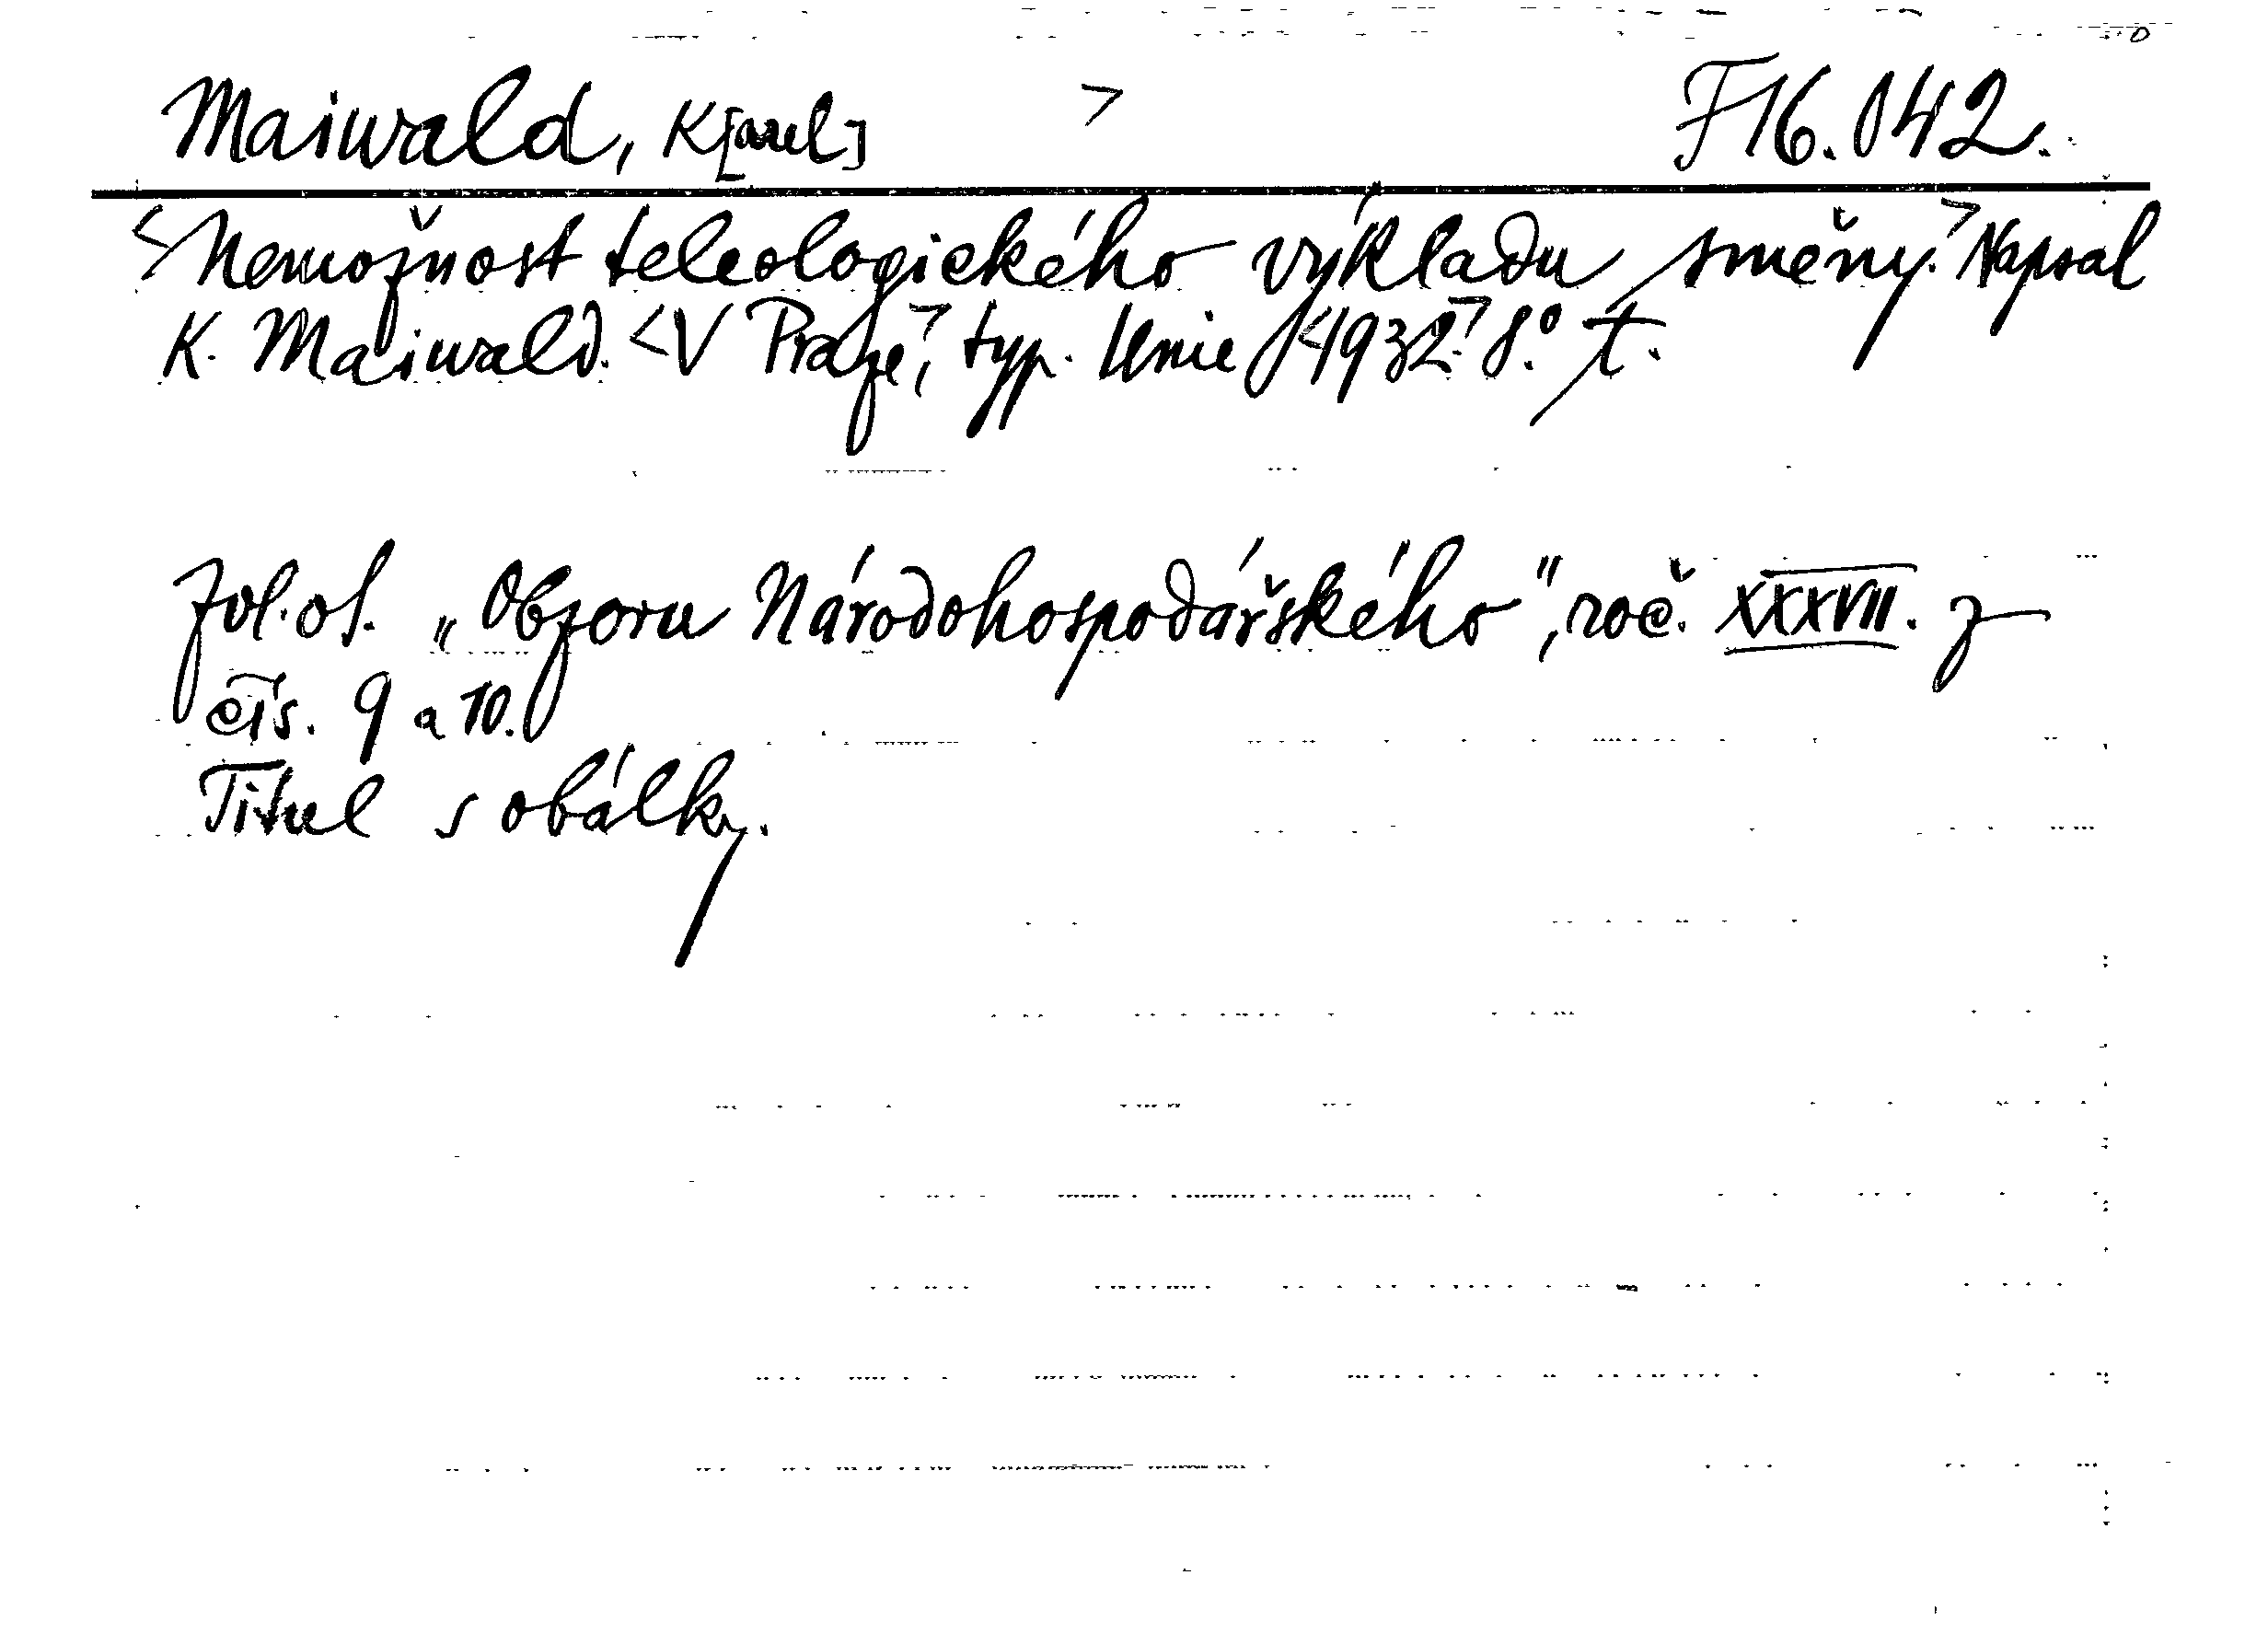 Maiwald, K[arel] > F 16.042.
<Nemožnost teleologického výkladu směny.> Napsal
K. Maiwald. <V Praze>, typ. Unie <1932.> 8°. t.
Zvl. ot. „Obzoru Národohospodářského", roč. XXXVII. z
čís. 9 a 10.
Titul s obálky.